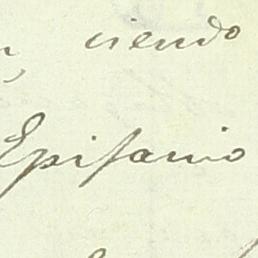 siendo
Epifanio